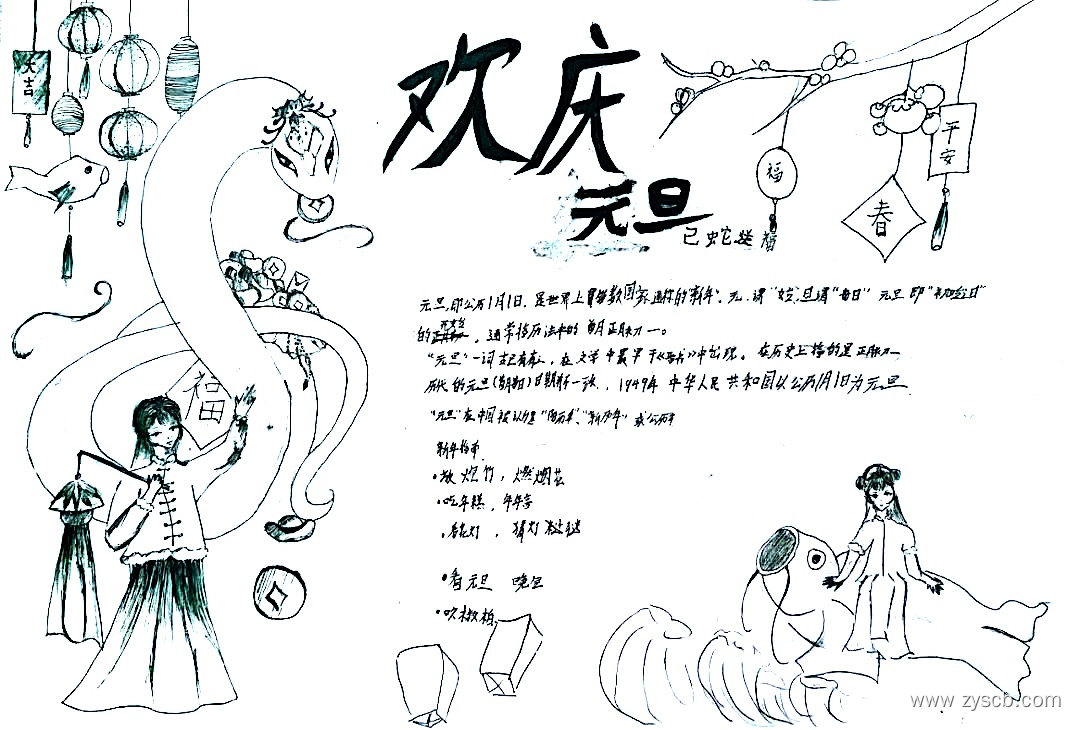 大吉
欢庆
元旦
巳蛇送福
福
平安
春
福
元旦,即公历1月1日,是世界上多数国家通称的"新年"。元,谓"始",旦谓"日" 元旦即
的 ,通常指历法中的 月正月初一。
"元旦"一词 ,在文学中最早 》中出现。在历史上指的是正月初一
历代的元旦 日期 一致,1949年中华人民共和国以公历1月1日为元旦
"元旦"在中国 "新历年" 或公历年
新年
·放炮竹,燃烟花
·吃年糕,年年
·看花灯,猜灯谜
·看元旦 晚会
·吹
www.zyscb.com